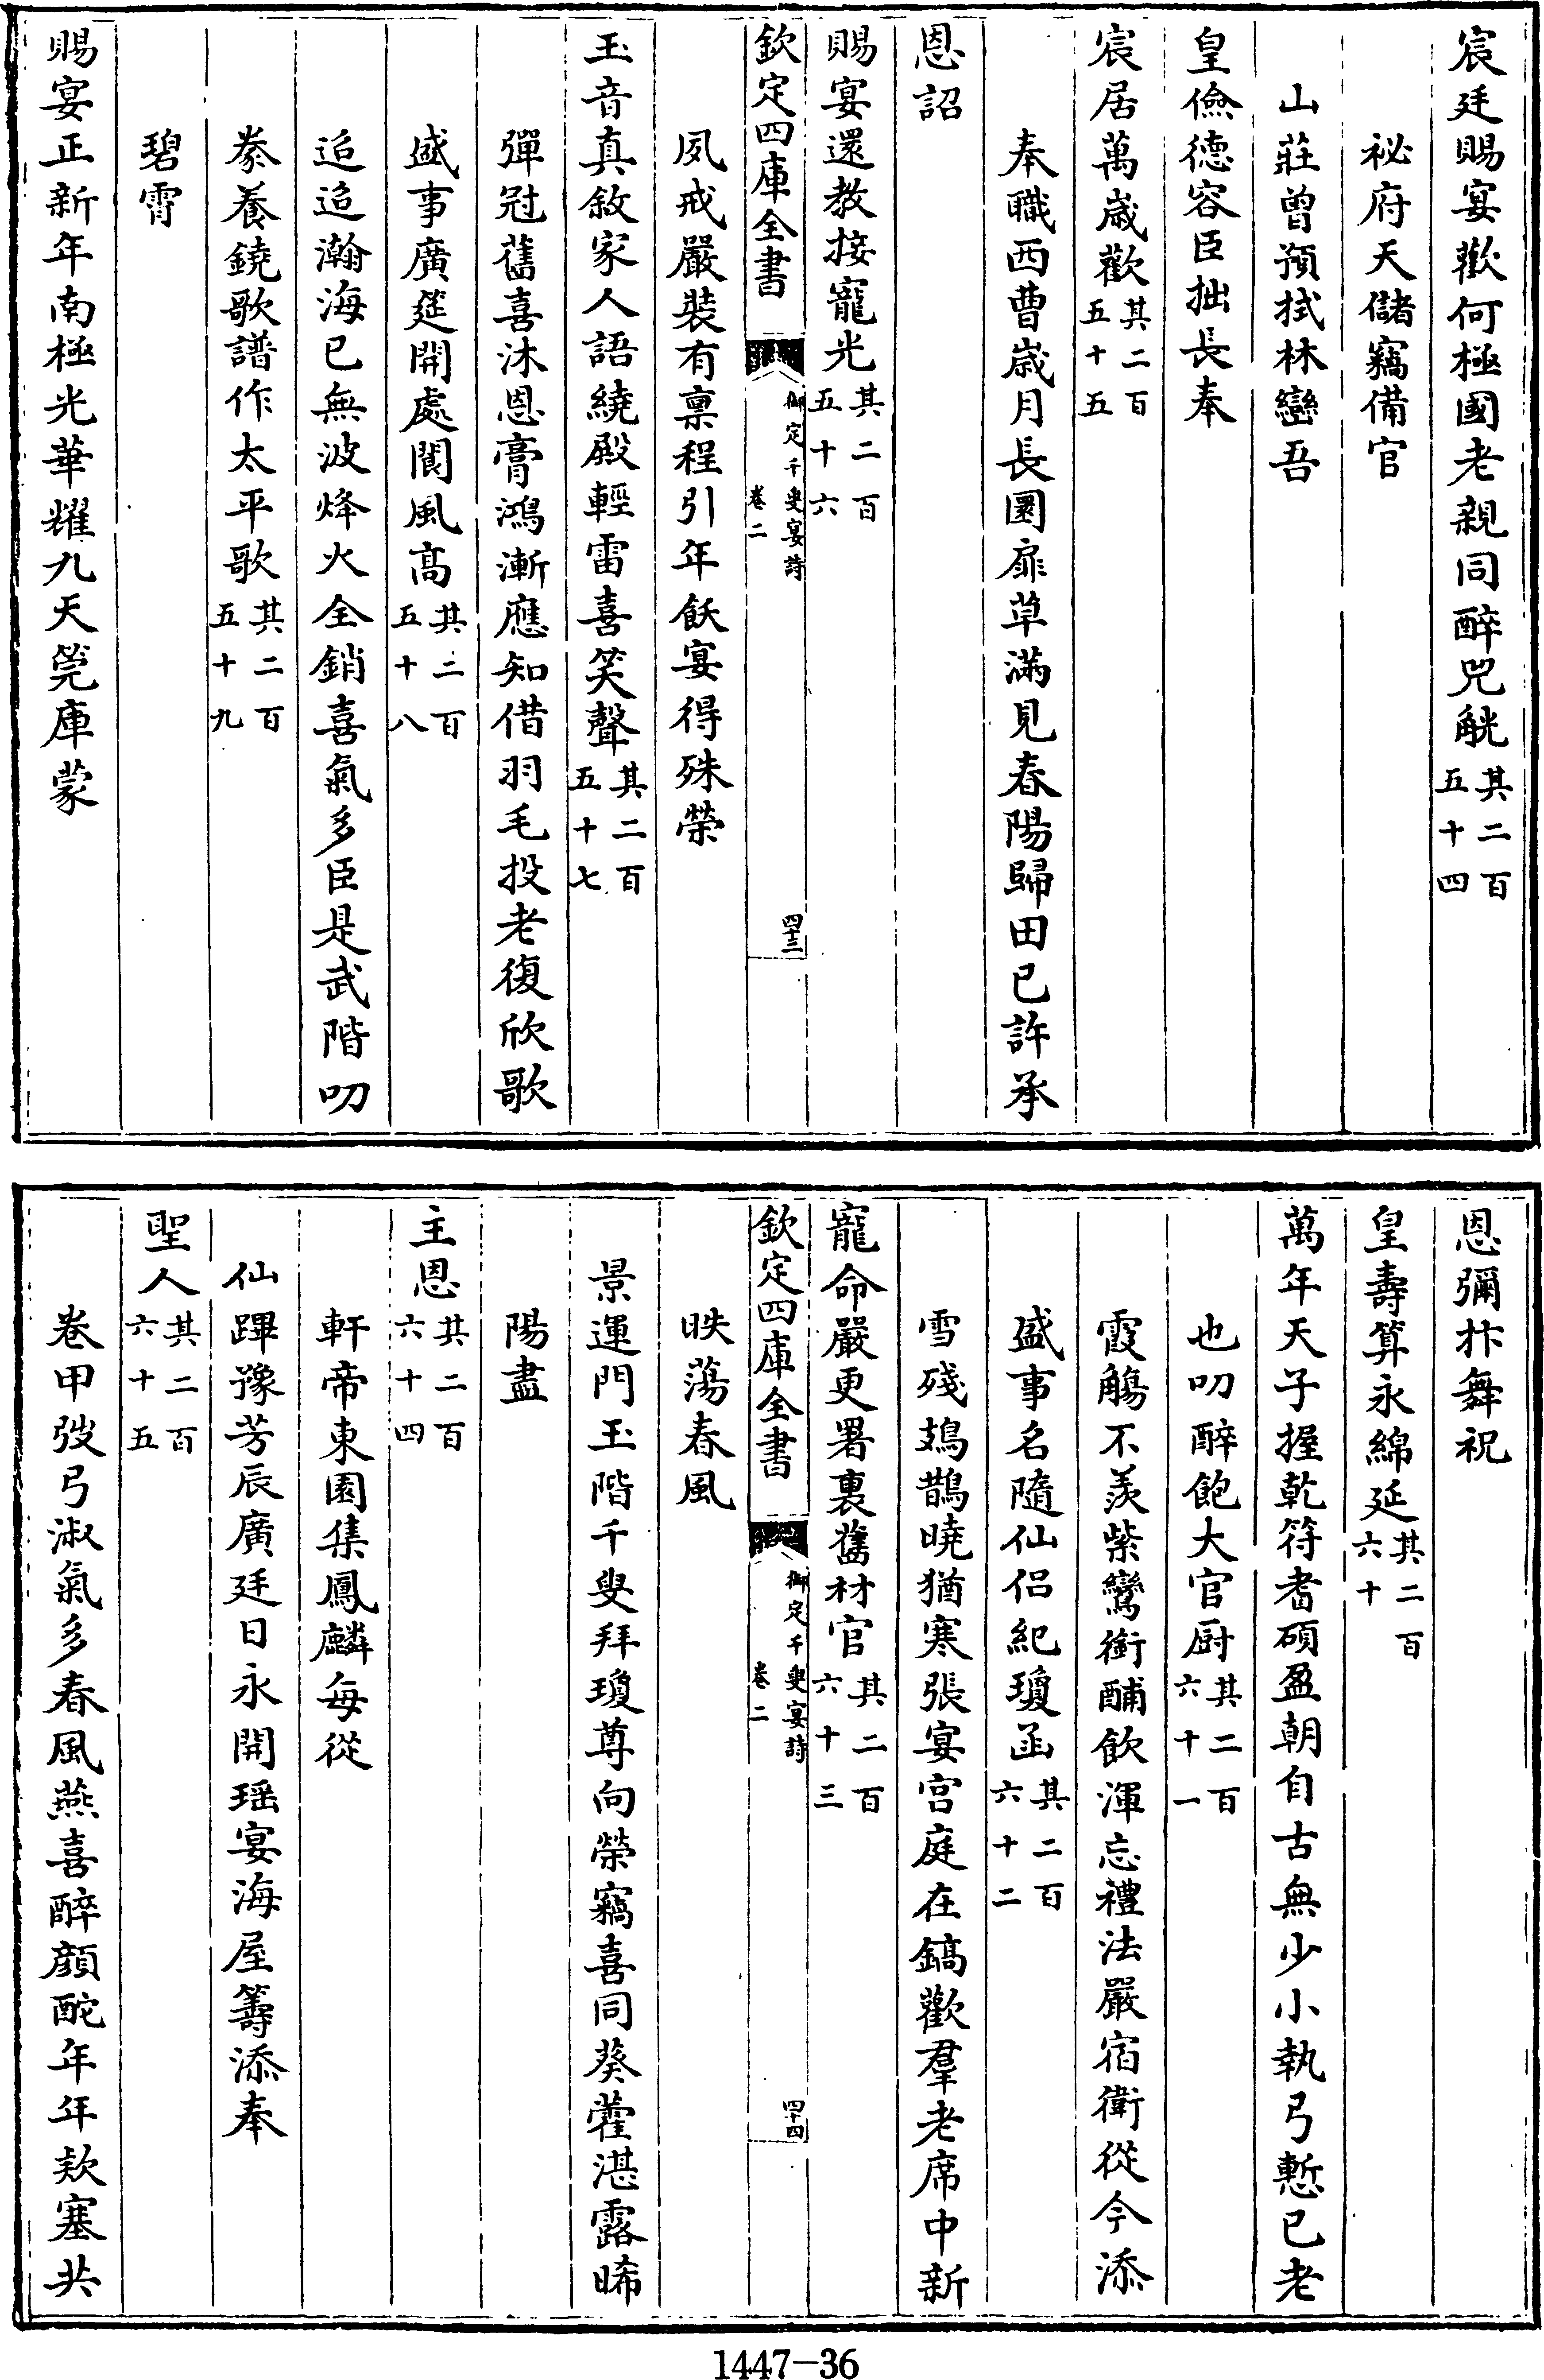 宸廷賜宴歡何極國老親同醉兕觥其二百五十四
祕府天儲竊備官
山莊曾預拭林巒吾
皇儉德容臣拙長奉
宸居萬歲歡其二百五十五
奉職西曹歲月長圜扉草滿見春陽歸田已許承
恩詔
賜宴還教接寵光其二百五十六
欽定四庫全書 御定千叟宴詩 卷二 四十三
夙戒嚴裝有稟程引年飫宴得殊榮
玉音真敘家人語繞殿輕雷喜笑聲其二百五十七
彈冠舊喜沐恩膏鴻漸應知借羽毛投老復欣歌
盛事廣筵開處閬風高其二百五十八
迢迢瀚海已無波烽火全銷喜氣多臣是武階叨
豢養鐃歌譜作太平歌其二百五十九
碧霄
賜宴正新年南極光華耀九天筦庫蒙
恩彌抃舞祝
皇壽算永綿延其二百六十
萬年天子握乾符耆碩盈朝自古無少小執弓慙已老
也叨醉飽大官厨其二百六十一
霞觴不羨紫鸞銜酺飲渾忘禮法嚴宿衛從今添
盛事名隨仙侣紀瓊函其二百六十二
雪殘鳷鵲曉猶寒張宴宫庭在鎬歡羣老席中新
寵命嚴更署裏舊材官其二百六十三
欽定四庫全書 御定千叟宴詩 卷二 四十四
昳蕩春風
景運門玉階千叟拜瓊尊向榮竊喜同葵藿湛露晞
陽盡
主恩其二百六十四
軒帝東園集鳳麟每從
仙蹕豫芳辰廣廷日永開瑶宴海屋籌添奉
聖人其二百六十五
卷甲弢弓淑氣多春風燕喜醉顔酡年年欵塞共
1447-36